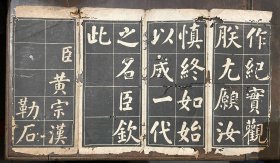 作紀實觀
朕尤願汝
慎終如始
以成一代
之名臣欽
此
臣黃宗漢
勒石